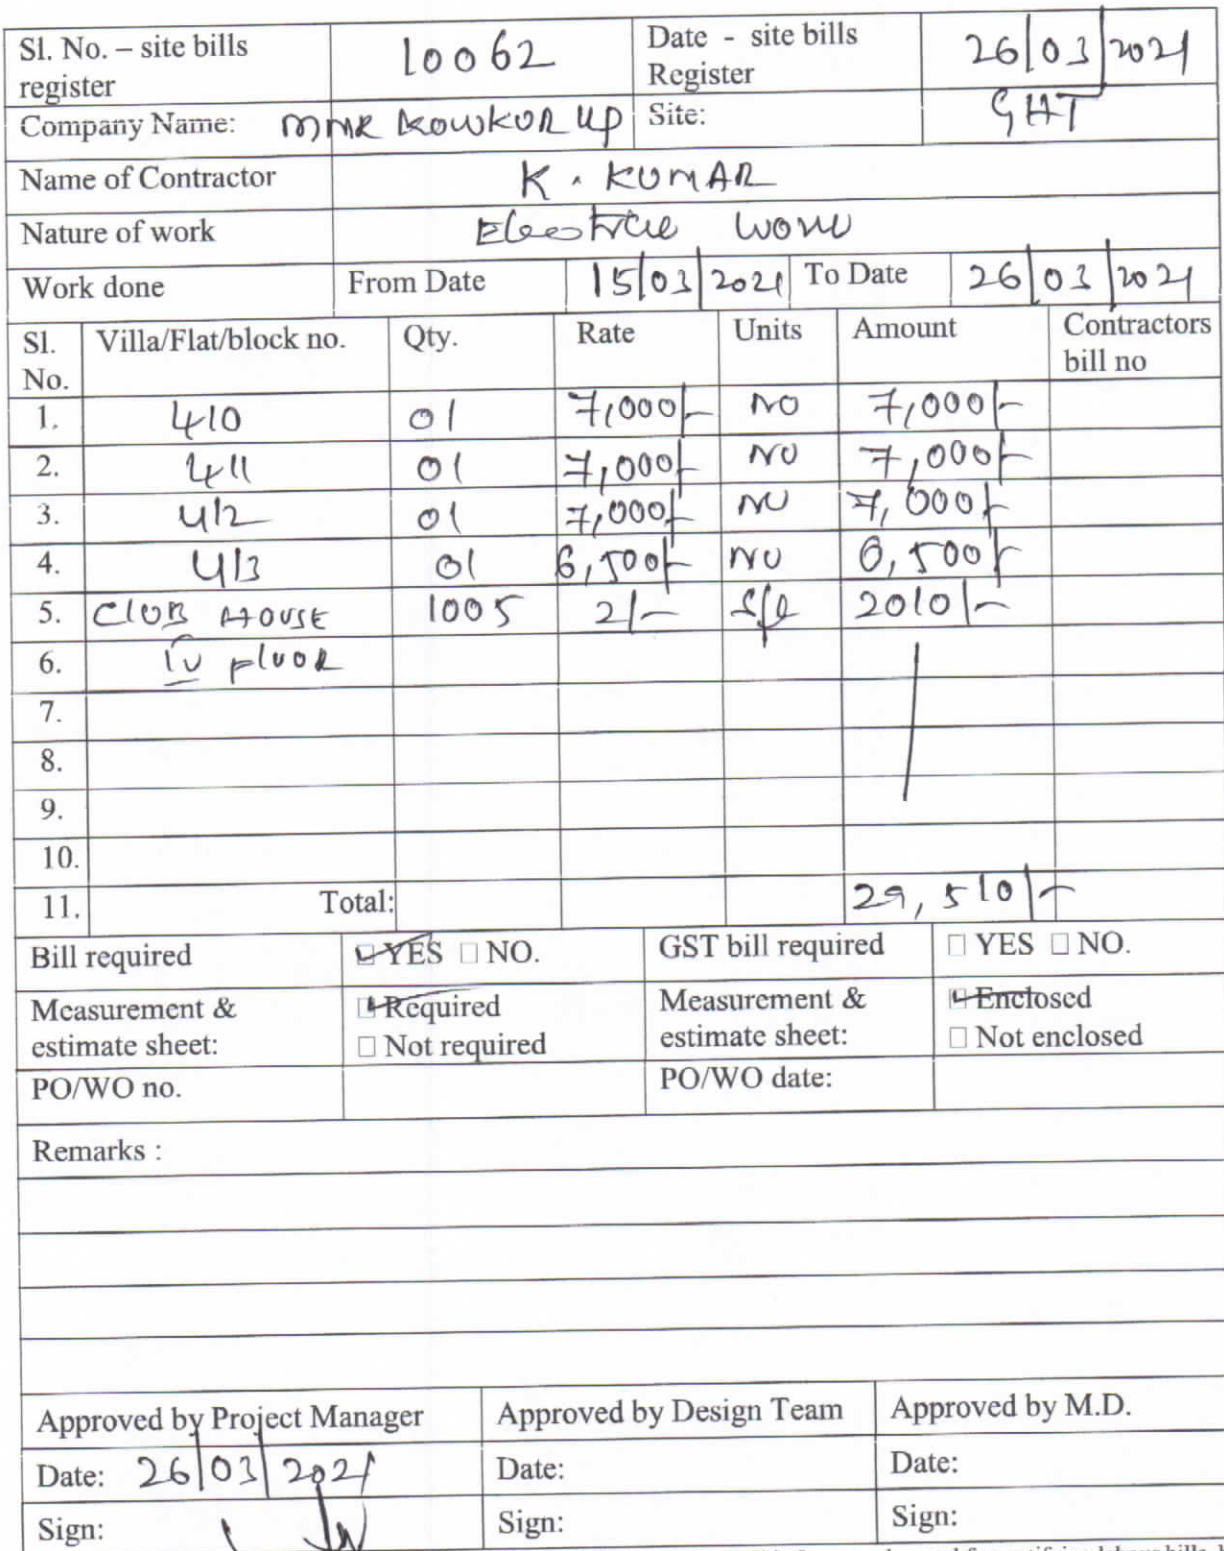 Sl. No. – site bills register 10062 Date - site bills Register 26/03/2021
Company Name: MMR KOWKUR LLP Site: GHT
Name of Contractor K. KUMAR
Nature of work Electric work
Work done From Date 15/03/2021 To Date 26/03/2021
Sl. No. Villa/Flat/block no. Qty. Rate Units Amount Contractors bill no
1. 410 01 7,000/- NO 7,000/-
2. 411 01 7,000/- NO 7,000/-
3. 412 01 7,000/- NO 7,000/-
4. 413 01 6,500/- NO 6,500/-
5. CLUB HOUSE 1005 2/- sft 2010/-
6. IV FLOOR
7.
8.
9.
10.
11. Total: 29,510/-
Bill required YES NO. GST bill required YES NO.
Measurement & estimate sheet: Required Not required Measurement & estimate sheet: Enclosed Not enclosed
PO/WO no. PO/WO date:
Remarks :
Approved by Project Manager Approved by Design Team Approved by M.D.
Date: 26/03/2021 Date: Date:
Sign: Sign: Sign: